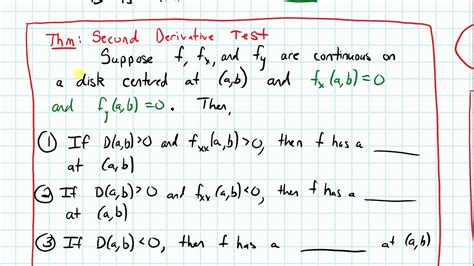 Thm: Second Derivative Test
Suppose f, fx, and fy are continuous on
a disk centred at (a,b) and fx(a,b)=0
and fy(a,b)=0. Then,
① If D(a,b)>0 and fxx(a,b)>0, then f has a ____
at (a,b)
② If D(a,b)>0 and fxx(a,b)<0, then f has a ____
at (a,b)
③ If D(a,b)<0, then f has a ____ at (a,b)